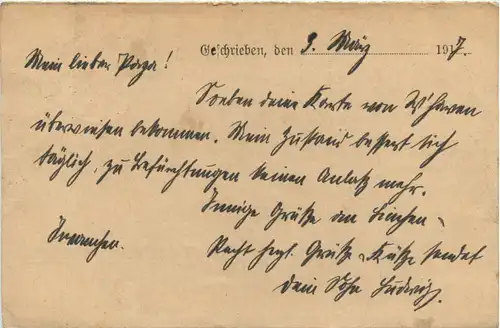 Geschrieben, den 9. März 1917.
Mein lieber Papa!
Soeben deine Karte von W'haven
überwiesen bekommen. Mein Zustand bessert sich
täglich, zu Befürchtungen keinen Anlaß mehr.
Innige Grüße an
Recht herzl. Grüße u. Küsse sendet
dein Sohn Ludwig.